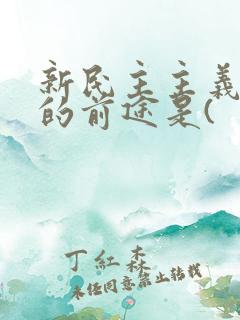 新民主主義
的前途是(
丁紅森
未经同意禁止转载